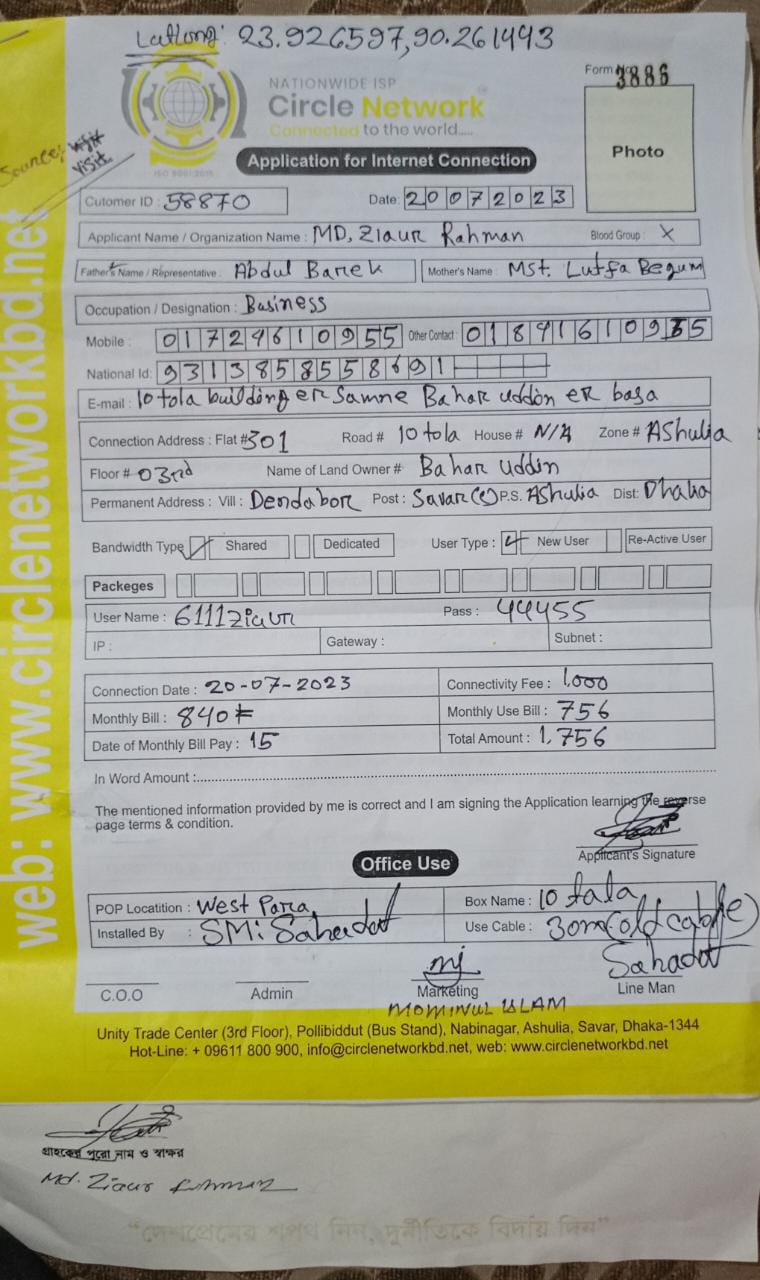 Latlong: 23.926597,90.261443
NATIONWIDE ISP
Circle Network
Connected to the world.....
ISO 9001:2015
Form No 3886
Photo
Source: Visit
Application for Internet Connection
Cutomer ID : 58870 Date: 20072023
Applicant Name / Organization Name : MD, Ziaur Rahman Blood Group : X
Father's Name / Representative : Abdul Barek Mother's Name : Mst. Lutfa Begum
Occupation / Designation : Business
Mobile : 01724610955 Other Contact : 018916109
National Id: 9313858558691
E-mail : 10 tola building er Samne Bahar uddin er basa
Connection Address : Flat # 301 Road # 10 tola House # N/A Zone # AShulia
Floor # 03rd Name of Land Owner # Bahar uddin
Permanent Address : Vill : Dendabor Post : Savar P.S. AShulia Dist: Dhaka
Bandwidth Type Shared Dedicated User Type : New User Re-Active User
Packeges
User Name : 6111ziaur Pass : 44455
IP : Gateway : Subnet :
Connection Date : 20-07-2023 Connectivity Fee : 1,000
Monthly Bill : 840 Monthly Use Bill : 756
Date of Monthly Bill Pay : 15 Total Amount : 1,756
In Word Amount :
The mentioned information provided by me is correct and I am signing the Application learning the reverse
page terms & condition.
Applicant's Signature
Office Use
POP Locatition : West Para Box Name : 10 tala
Installed By : SM: Sahadot Use Cable : 30m(old cable)
mj Sahadot
C.O.O Admin Marketing Line Man
MOMINUL ISLAM
Unity Trade Center (3rd Floor), Pollibiddut (Bus Stand), Nabinagar, Ashulia, Savar, Dhaka-1344
Hot-Line: + 09611 800 900, info@circlenetworkbd.net, web: www.circlenetworkbd.net
web: www.circlenetworkbd.net
গ্রাহকের পুরো নাম ও স্বাক্ষর
Md. Ziaur Rahman
“দেশপ্রেমের শপথ নিন, দুর্নীতিকে বিদায় দিন”